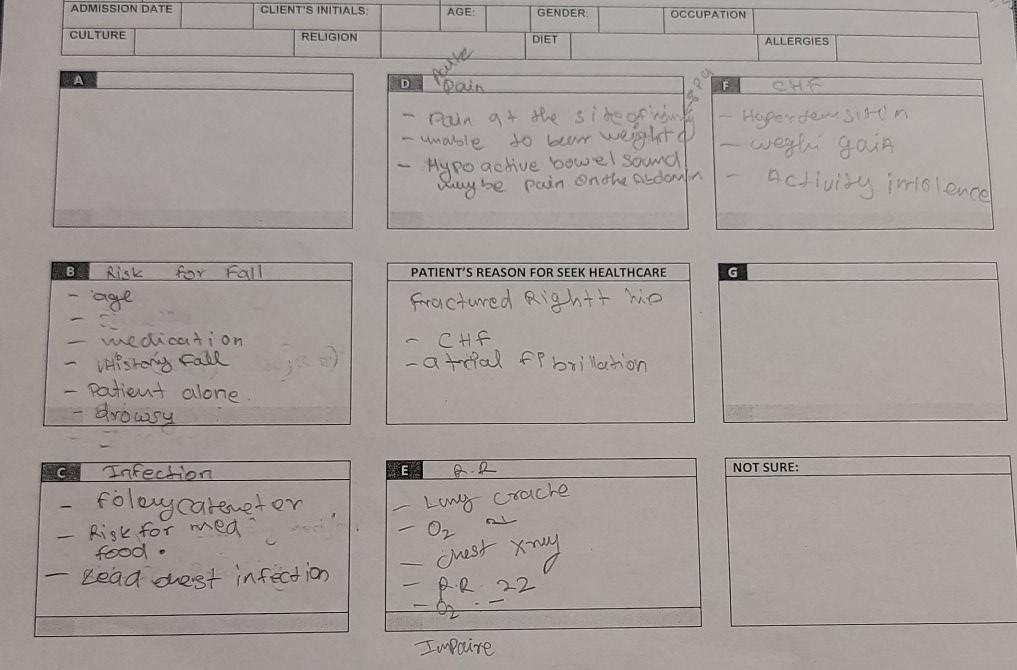 ADMISSION DATE CLIENT'S INITIALS: AGE: GENDER: OCCUPATION
CULTURE RELIGION DIET ALLERGIES
A
D Acute Pain
- Pain at the site of injury
- unable to bear weight
- Hypo active bowel sound
may be pain on the Abdomin
F CHF
- Hypertension
- weghi gain
- Activity intolence
B Risk for Fall
- age
-
- medication
- History fall
- Patient alone.
- drowsy
PATIENT'S REASON FOR SEEK HEALTHCARE
Fractured Rightt hip
- CHF
- atrial fibrillation
G
C Infection
- foley cateneter
- Risk for med
food.
- Lead chest infection
E R.R
- Lung cracke
- O2
- chest xray
- R.R 22
- O2 -
Impaire
NOT SURE: